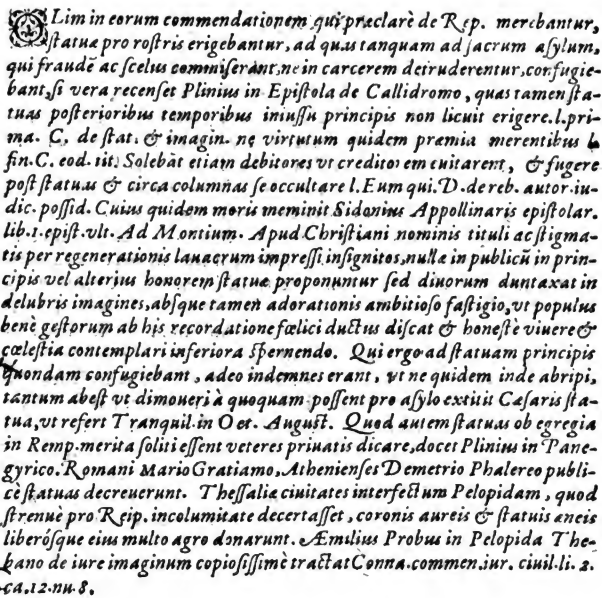 OLim in eorum commendationem qui præclarè de Rep. merebantur,
ſtatuæ pro roſtris erigebantur, ad quas tanquam ad ſacrum aſylum,
qui fraudẽ ac ſcelus commiſerant, ne in carcerem detruderentur, confugie-
bant, ſi vera recenſet Plinius in Epiſtola de Callidromo, quas tamen ſta-
tuas poſterioribus temporibus iniuſſu principis non licuit erigere. l. pri-
ma. C. de ſtat. & imagin. ne virtutum quidem præmia merentibus l.
fin. C. eod. tit. Solebãt etiam debitores vt creditorem euitarent, & fugere
poſt ſtatuas & circa columnas ſe occultare l. Eum qui. D. de reb. autor. iu-
dic. poſſid. Cuius quidem moris meminit Sidonius Appollinaris epiſtolar.
lib. 1. epiſt. vlt. Ad Montium. Apud Chriſtiani nominis tituli ac ſtigma-
tis per regenerationis lauacrum impreſſi inſignitos, nulla in publicũ in prin-
cipis vel alterius honorem ſtatuæ proponuntur ſed diuorum duntaxat in
delubris imagines, abſque tamen adorationis ambitioſo faſtigio, vt populus
benè geſtorum ab his recordatione fœlici ductus diſcat & honeſtè viuere &
cœleſtia contemplari inferiora ſpernendo. Qui ergo ad ſtatuam principis
quondam confugiebant, adeo indemnes erant, vt ne quidem inde abripi,
tantum abeſt vt dimoueri à quoquam poſſent pro aſylo extitit Cæſaris ſta-
tua, vt refert Tranquil. in Oct. Auguſt. Quod autem ſtatuas ob egregia
in Remp. merita ſoliti eſſent veteres priuatis dicare, docet Plinius in Pane-
gyrico. Romani Mario Gratiamo, Athenienſes Demetrio Phalereo publi-
cè ſtatuas decreuerunt. Theſſaliæ ciuitates interfectum Pelopidam, quod
ſtrenuè pro Reip. incolumitate decertaſſet, coronis aureis & ſtatuis æneis
liberóſque eius multo agro donarunt. Æmilius Probus in Pelopida The-
bano de iure imaginum copioſiſſimè tractat Conna. commen. iur. ciuil. li. 2.
ca. 12. nu. 8.